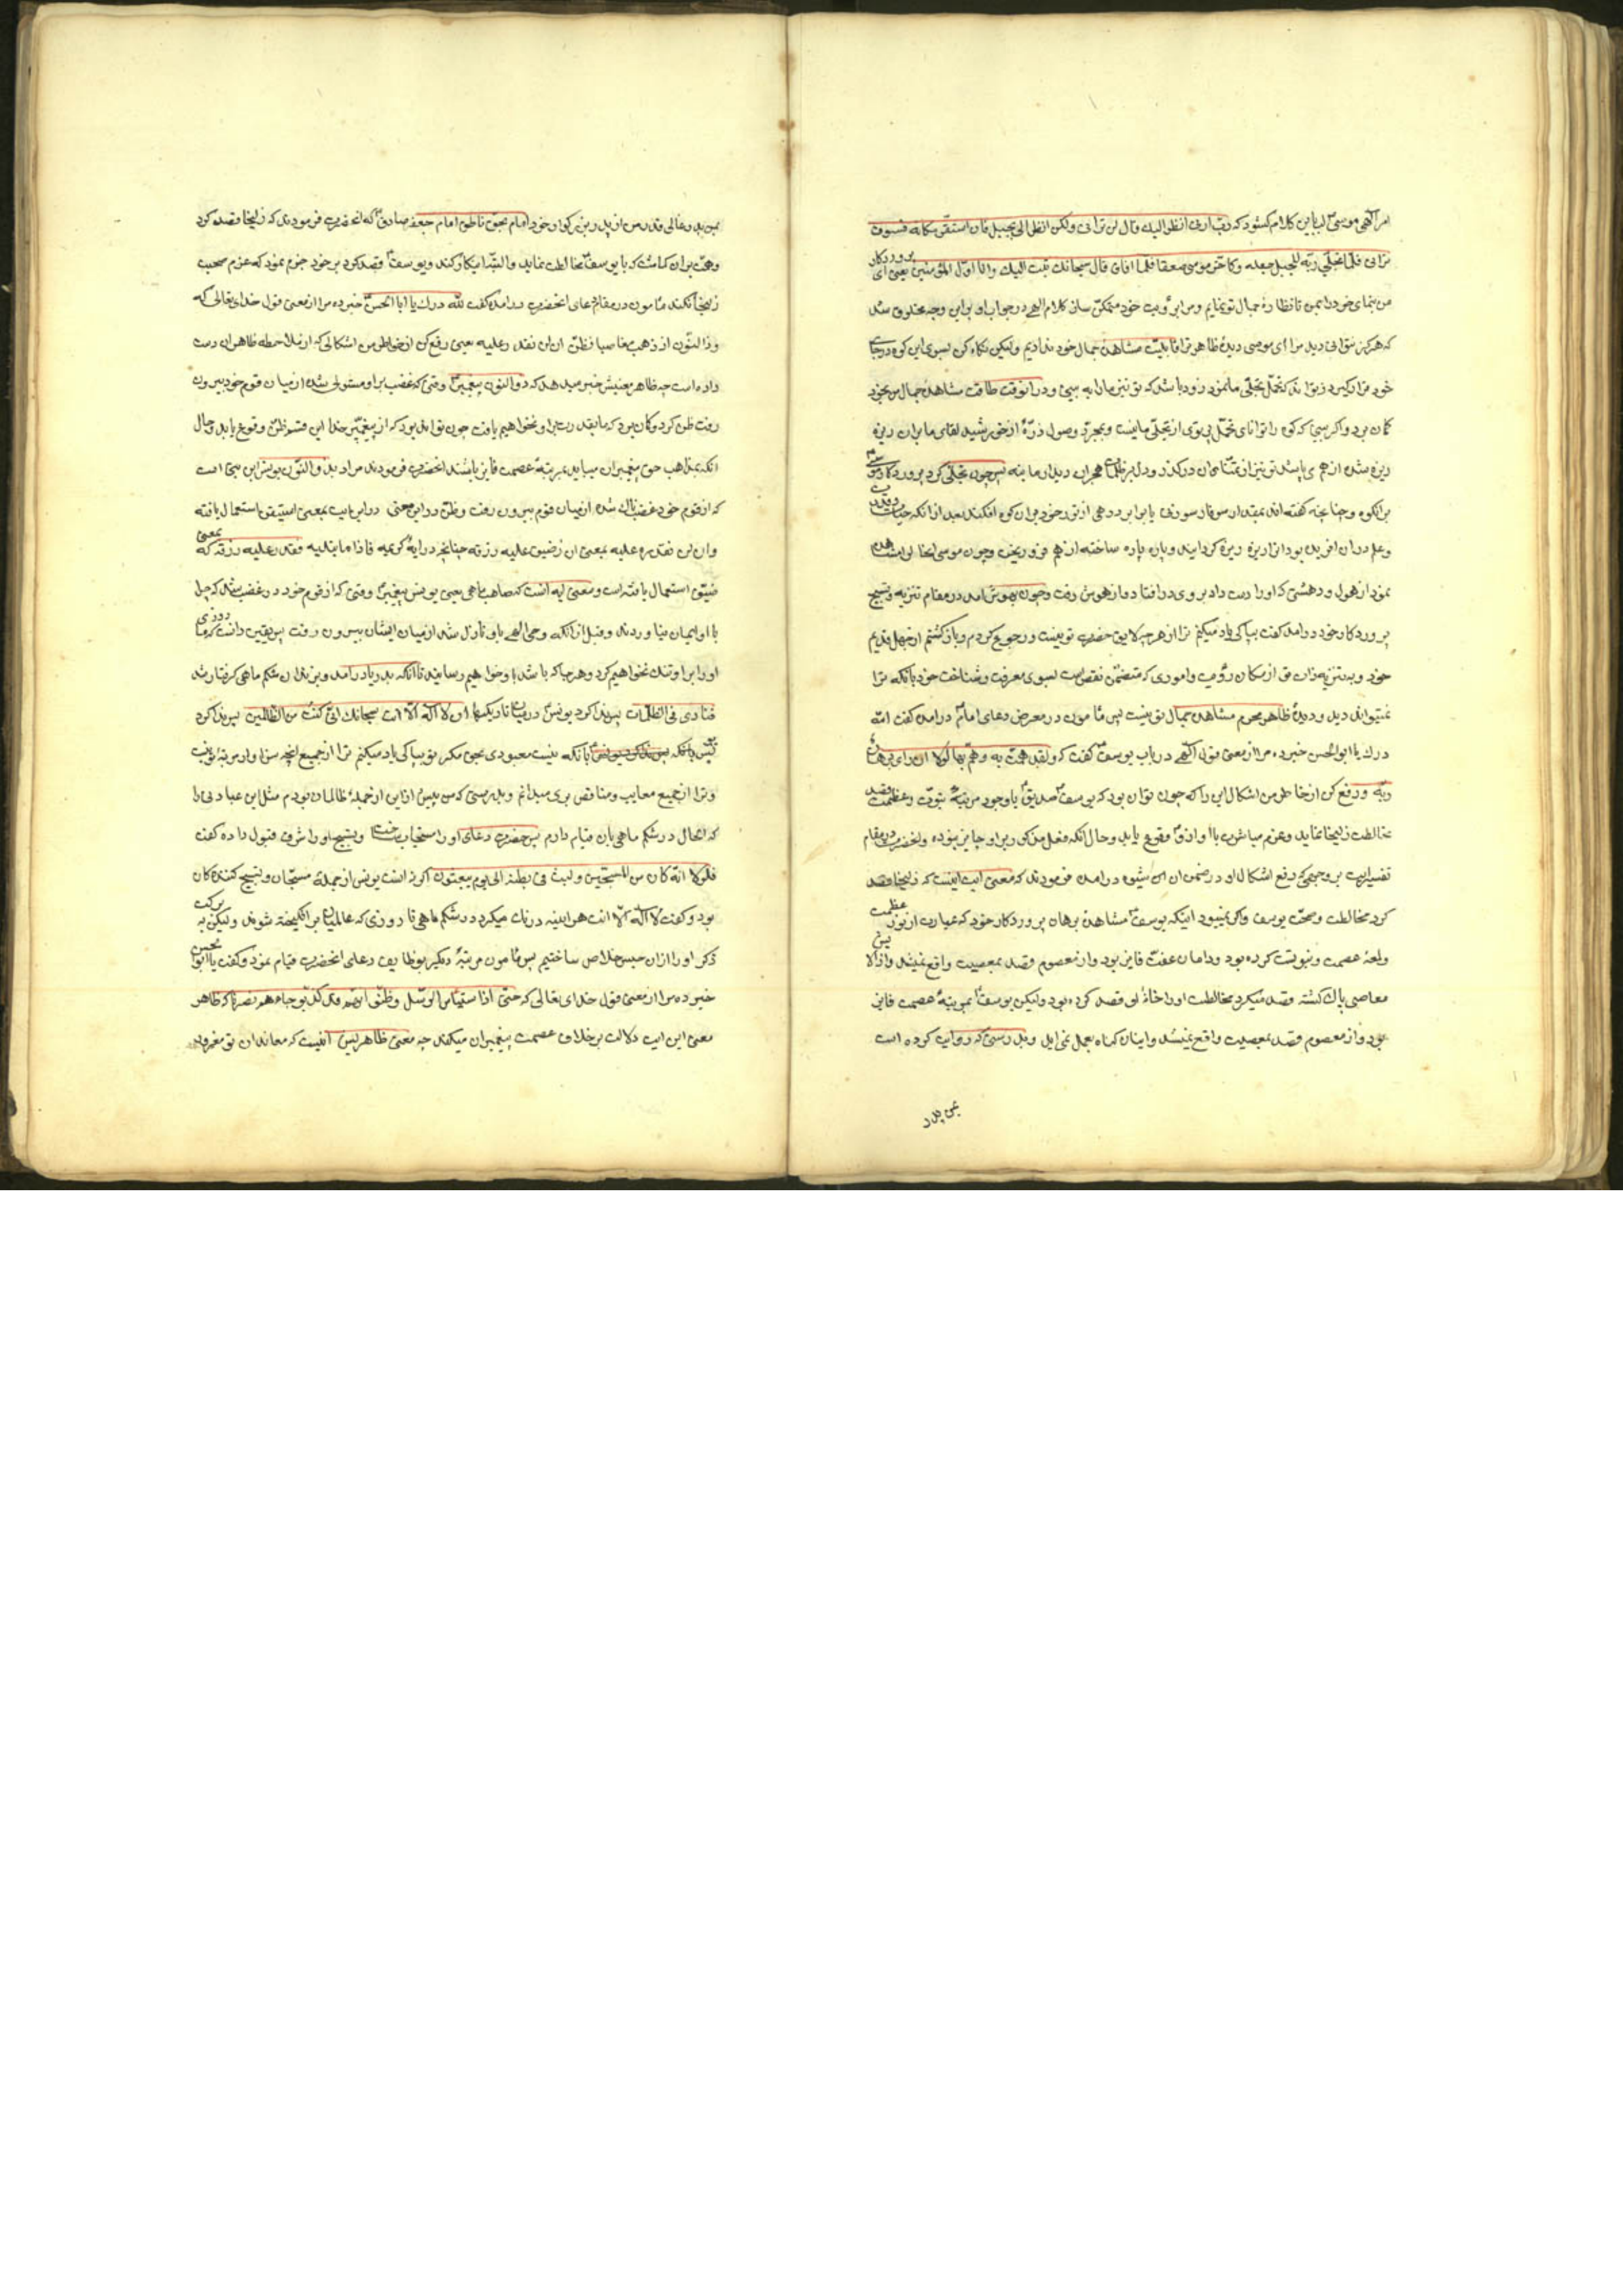 امر الهی موسی لب باین کلام کشود که رب ارنی انظر الیک قال لن ترانی ولکن انظر الی الجبل فان استقر مکانه فسوف
ترانی فلما تجلی ربه للجبل جعله دکا و خر موسی صعقا فلما افاق قال سبحانک تبت الیک وانا اول المؤمنین یعنی ای پروردکار
من بنمای خود را بمن تا نظاره جمال تو نمایم و مرا برؤیت خود متمکن ساز کلام الهی در جواب او براین وجه مخلوق شد
که هرکز نتوانی دید مرا ای موسی دیدهٔ ظاهر ترا قابلیت مشاهدهٔ جمال خود ندادیم ولیکن نکاه کن بسوی این کوه در جای
خود قرار کیرد و تواند که تحمل تجلی ما نمود زود باشد که تو نیز ما را به بینی و در آنوقت طاقت مشاهدهٔ جمال من بخود
کمان برد و اکر بینی که کوه را توانای تحمل پرتوی از تجلی ما نیست و بمجرد وصول ذرهٔ از خورشید لقای ما بران ریزه
ریزه شده از هم می پاشد تو نیز از تمنای آن درکذر و دل بر هجران دیدار ما بنه پس چون تجلی کرد پروردکار موسی
بر آنکوه و چنانچه کفته اند بمقدار سوفار سوزنی یا برابر درهمی از نور خود بران کوه افکند بعد از آنکه حیات
و علم دران آفریده بود انرا ریزه ریزه کردانید و پاره پاره ساخته از هم فرو ریخت و چون موسی انحال مشاهده
نمود از هول و دهشتی که او را دست داد بروی در افتاد و از هوش رفت و چون بهوش آمد در مقام تنزیه و تسبیح
پروردکار خود درآمد کفت بپاکی یاد میکنم ترا از هرچه لایق حضرت تو نیست و رجوع کردم و باز کشتم از جهل قدیم
خود و به تنزیه ذات تو از مکان رؤیت و اموری که متضمن نقص است بسوی معرفت و شناخت خود بآنکه ترا
نمیتواند دید و دیدهٔ ظاهر محرم مشاهدهٔ جمال تو نیست پس مأمون در معرض دعای امام درآمد کفت لله
درک یا ابوالحسن خبر ده مرا از معنی قول الهی در باب یوسف کفت که ولقد همت به وهم بها لولا ان رای برهان
ربه و رفع کن از خاطر من اشکال این را که چون توان بود که یوسف صدیق با وجود مرتبهٔ نبوت و عظمت قصد
مخالطت زلیخا نماید و عزم مباشرت با او ازو وقوع یابد و حال آنکه فعل مذکور بر او جایز نبوده وانحضرت در مقام
تفسیر آیت بر وجهی که رفع اشکال او در ضمن آن این شیوه درآمده فرمودند که معنی آیت اینست که زلیخا قصد
کرد مخالطت و صحبت یوسف و اکر نمیبود اینکه یوسف مشاهدهٔ برهان پروردکار خود که عبارت از نور عظمت
عصمت و نبوتست کرده بود و دامان عفت فایز بود و از معصوم قصد بمعصیت واقع نمیشد
معاصی پاک کشته قصد میکرد مخالطت او را خانهٔ او قصد کرده بود ولیکن یوسف بمرتبهٔ عصمت فایز
بود و از معصوم قصد بمعصیت واقع نمیشد و اینان کناه بعمل نمی آید و بدرستی که روایت کرده است
پدر
بمن پدر عالی قدر من از پدر بزرکوار خود امام بحق ناطق امام جعفر صادق که انحضرت فرمودند که زلیخا قصد کرد
وهمت بران کماشت که با یوسف مخالطت نماید والبته اینکار کند و یوسف قصد کرد بر خود جزم نمود که عزم صحبت
زلیخا نکند مأمون در مقام دعای انحضرت درآمده کفت لله درک یا ابا الحسن خبر ده مرا از معنی قول خدای تعالی که
وذا النون اذ ذهب مغاضبا فظن ان لن نقدر علیه یعنی رفع کن از خاطر من اشکالی که از ملاحظه ظاهر ان دست
داده است چه ظاهر معنیش خبر میدهد که ذو النون پیغمبر وقتی که غضب بر او مستولی شده از میان قوم خود بیرون
رفت ظن کرد و کمان برد که ما بقدرت بر او نخواهیم یافت چون تواند بود که از پیغمبر خدا این قسم ظن وقوع یابد و حال
آنکه بمذهب حق پیغمبران میباید بمرتبهٔ عصمت فایز باشند انحضرت فرمودند مراد بذو النون یونس ابن متی است
که از قوم خود غضبناک شده از میان قوم بیرون رفت وظن در این آیت بمعنی استیقن استعمال یافته
وان لن نقدر علیه بمعنی ان نضیق علیه رزقه چنانچه در آیهٔ کریمه فاذا ما ابتلیه فقدر علیه رزقه که بمعنی
ضیق استعمال یافته است ومعنی آیه آنست که صاحب ماهی یعنی یونس پیغمبر وقتی که از قوم خود در غضب شد که چرا
با او ایمان نیاوردند و قبل از آنکه وحی الهی باو نازل شد از میان ایشان بیرون رفت پس یقین دانست که ما روزی
او را بر او تنک نخواهیم کرد و هر جا که باشد باو خواهیم رسانید تا آنکه بدریا درآمد و بزندان شکم ماهی کرفتار شد
فنادی فی الظلمات پس ندا کرد یونس در میان تاریکیها ان لا اله الا انت سبحانک انی کنت من الظالمین پس ندا کرد
یونس بآنکه بآنکه نیست معبودی بحق مکر تو بپاکی یاد میکنم ترا از جمیع آنچه سزاوار مرتبهٔ تو نیست
و ترا از جمیع معایب و مناقص بری میدانم و بدرستی که من پیش ازین از جملهٔ ظالمان بودم مثل این عبادتی را
که الحال در شکم ماهی بآن قیام دارم پس حضرت دعای او را مستجاب ساخت و تسبیح او را شرف قبول داده کفت
فلولا انه کان من المسبحین و لبث فی بطنه الی یوم یبعثون اکر نه انست یونس از جملهٔ مسبحان و تسبیح کنندکان
بود و کفت لا اله الا انت هر آینه درنک میکرد در شکم ماهی تا روزی که عالمیان برانکیخته شوند ولیکن به برکت
ذکر او را ازان حبس خلاص ساختیم پس مأمون مرتبهٔ دیکر بوظایف دعای انحضرت قیام نمود و کفت یا ابوالحسن
خبر ده مرا از معنی قول خدای تعالی که حتی اذا استیاس الرسل وظنوا انهم قد کذبوا جاءهم نصرنا که ظاهر
معنی این آیت دلالت بر خلاف عصمت پیغمبران میکند چه معنی ظاهریش آنست که معاندان تو مغرور